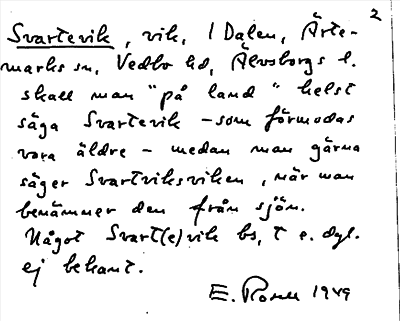 2
Svartevik, vik, I Dalen, Ärte-
marks sn, Vedbo hd, Älvsborgs l.
skall man "på land" helst
säga Svartevik – som förmodas
vara äldre – medan man gärna
säger Svartviksviken, när man
benämner den från sjön.
Något Svart(e)vik bs, t e. dyl.
ej bekant.
E. Rosell 1949